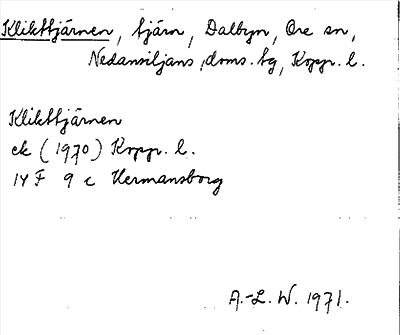 Klikttjärnen, tjärn, Dalbyn, Ore sn,
Nedansiljans doms. tg, Kopp. l.
Klikttjärnen
ek (1970) Kopp. l.
14 F 9 c Hermansborg
A.-L. W. 1971.